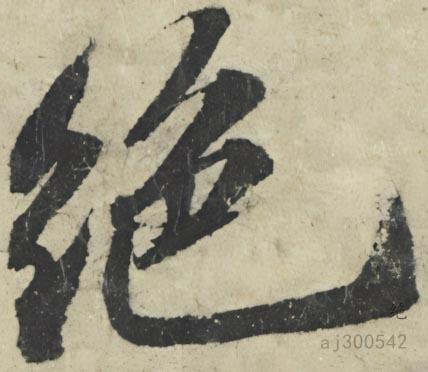 絶
絶
aj300542